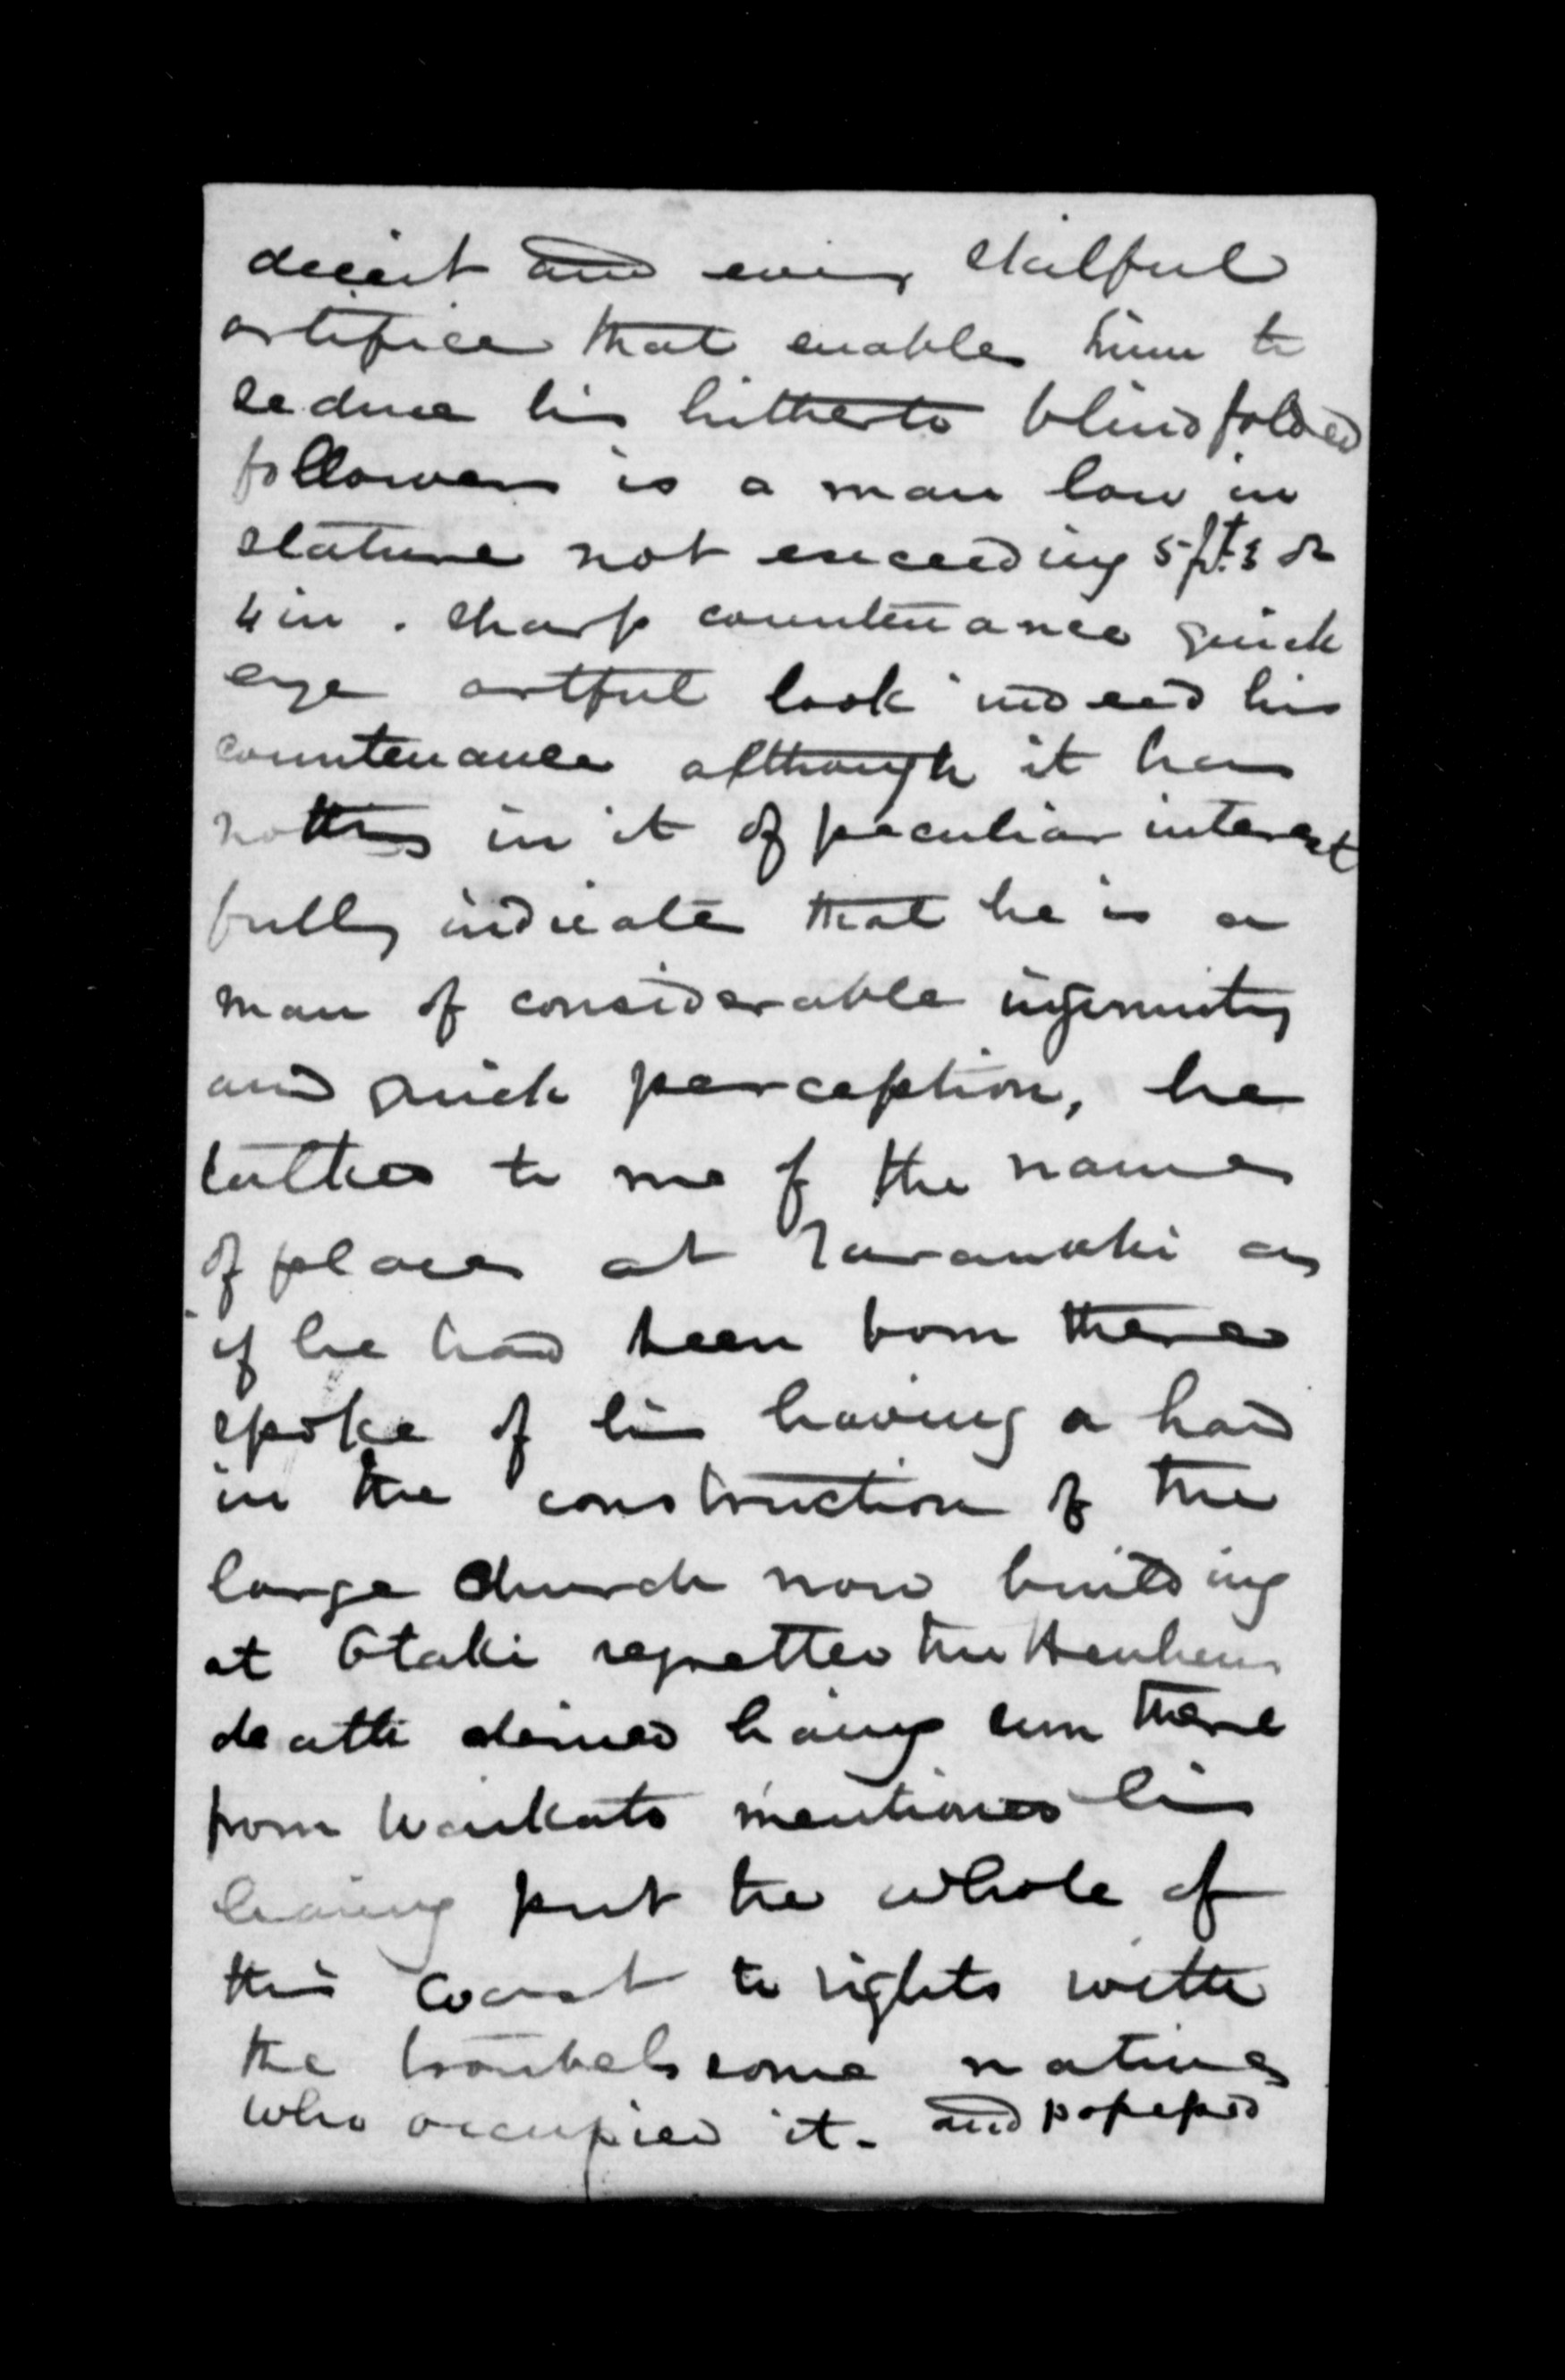 deceit and every skilful
artifice that enables him to
seduce his hitherto blindfolded
followers is a man low in
stature not exceeding 5 ft. 3 or
4 in. sharp countenance quick
eye artful look indeed his
countenance although it has
nothing in it of peculiar interest
fully indicates that he is a
man of considerable ingenuity
and quick perception, he
talked to me of the names
of places at Taranaki as
if he had been born there
spoke of his having a hand
in the construction of the
large church now building
at Otaki regretted the Heuheus
death denied having sum there
from Waikato mentioned his
having put the whole of
this coast to rights with
the troubelsome natives
who occupied it. and